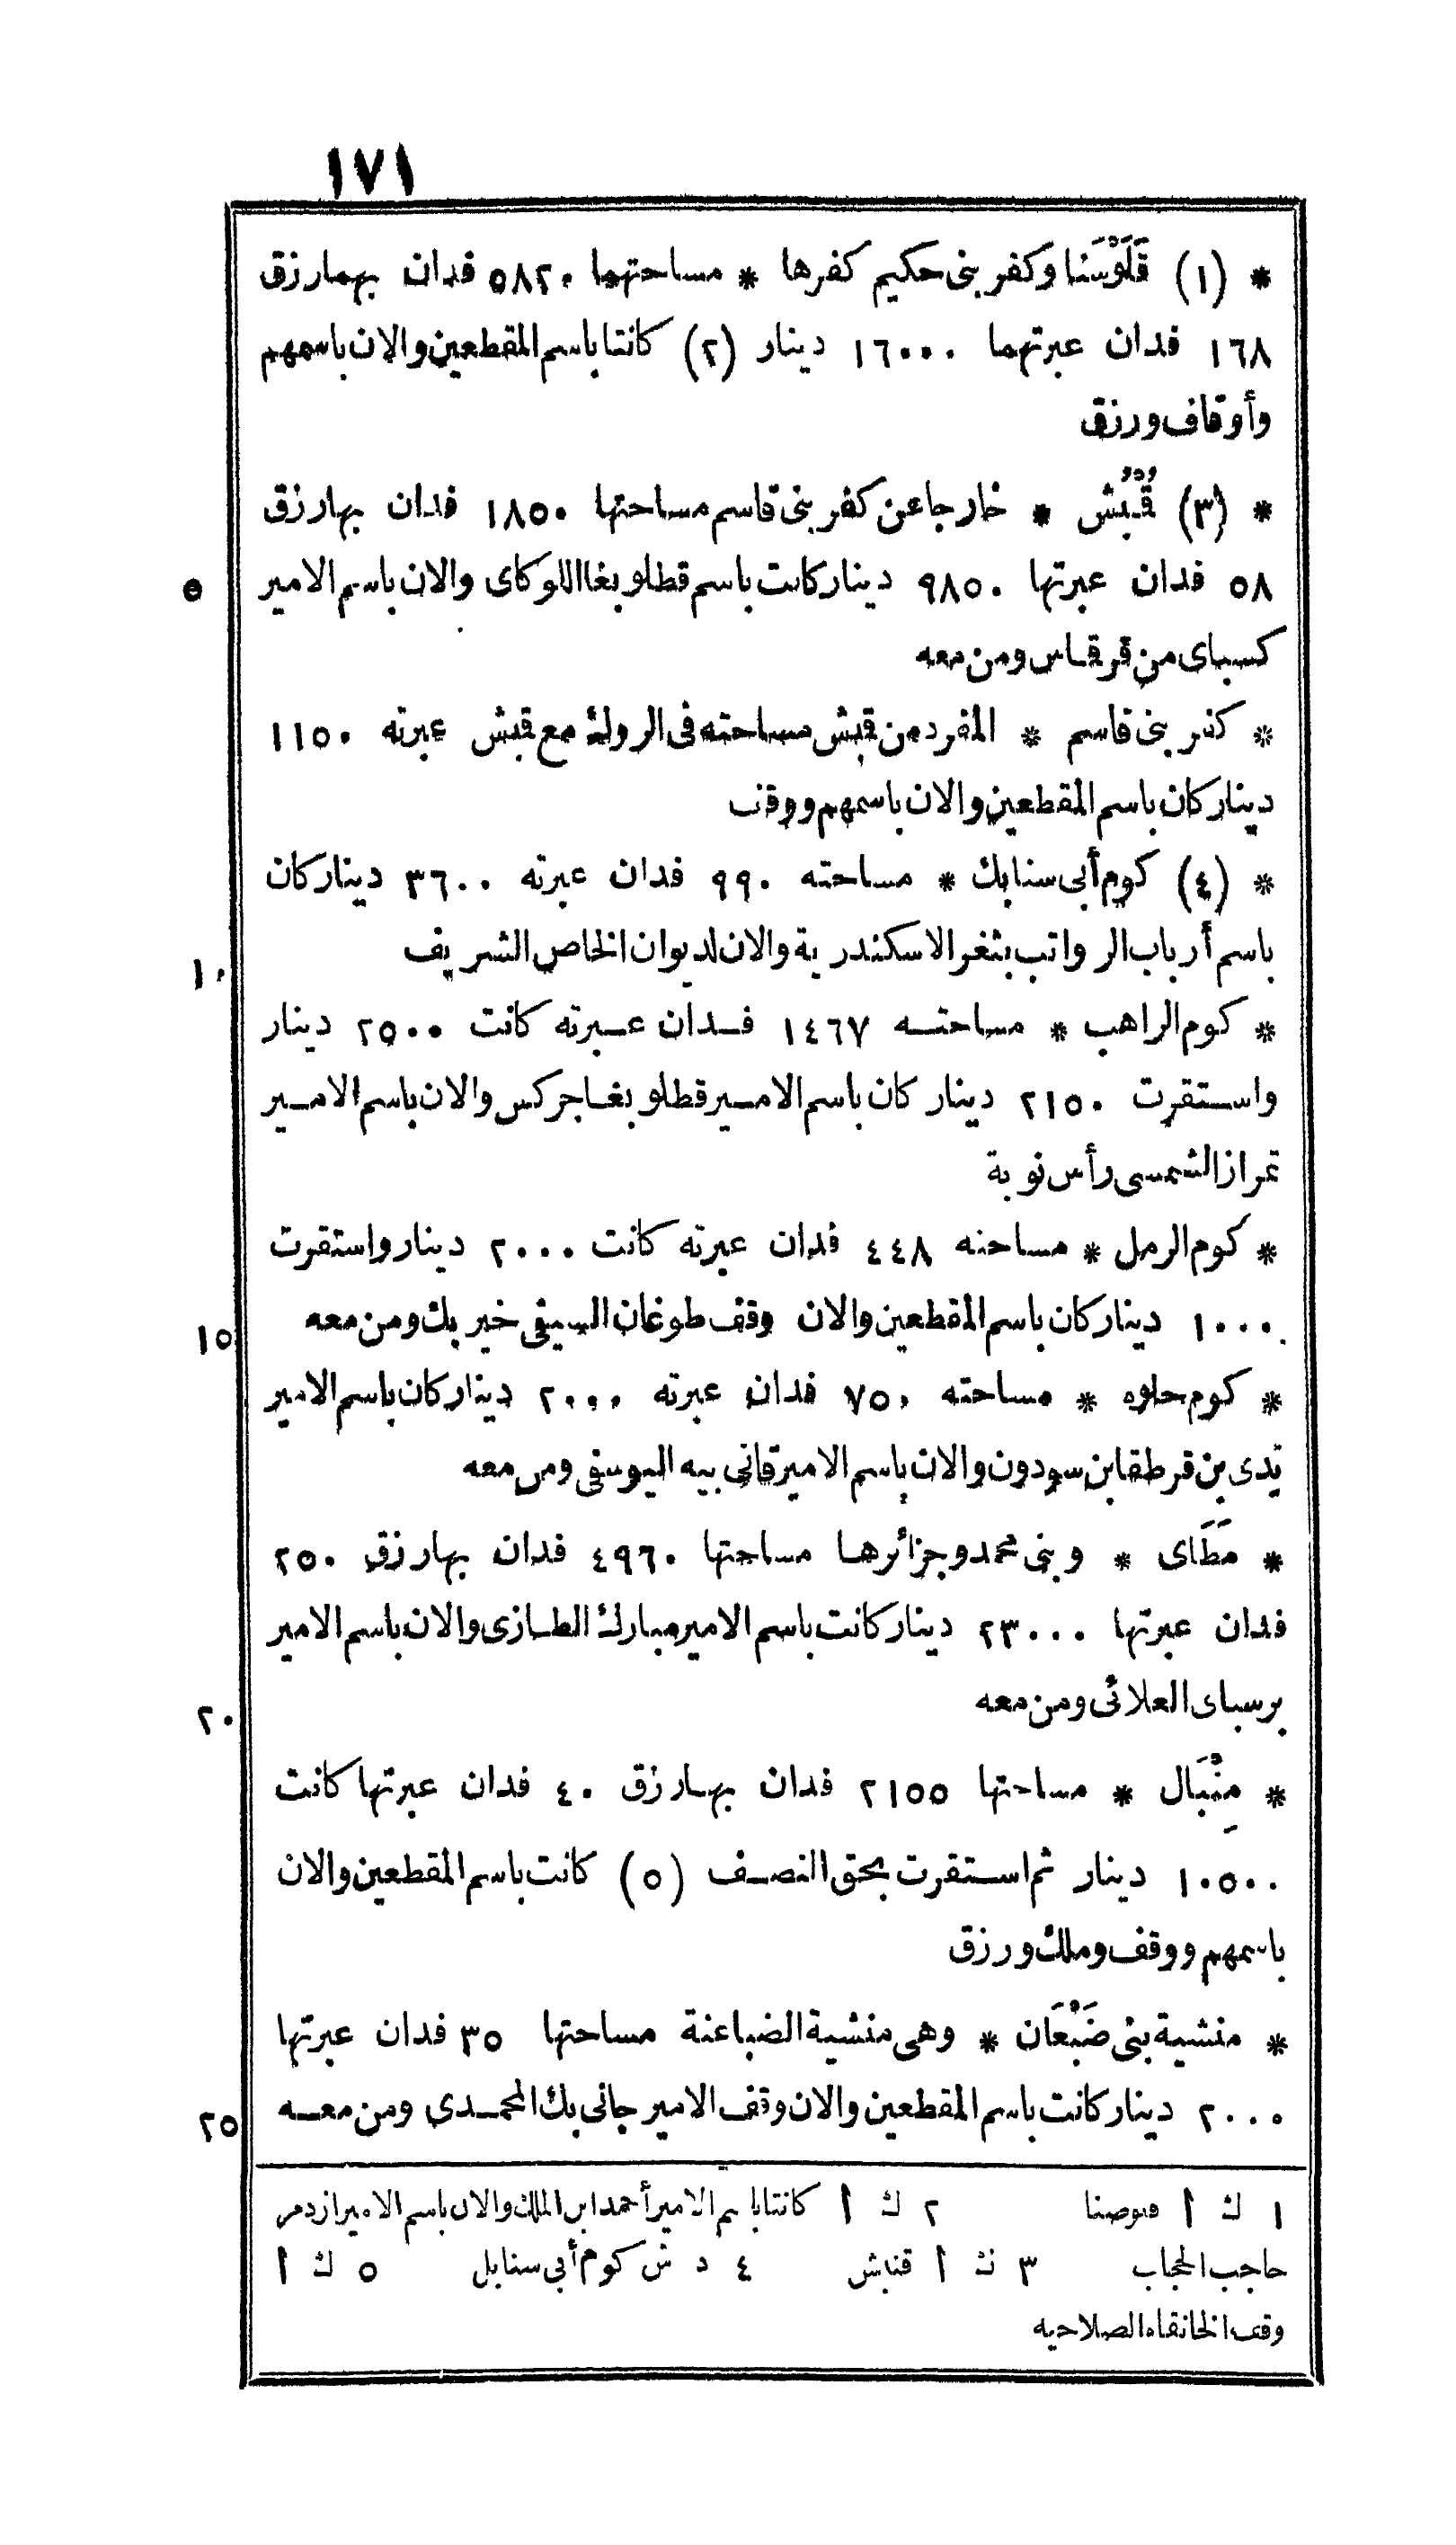 ١٧١
* (١) قَلَوْسَنا وكفر بنى حكيم كفرها * مساحتهما ٥٨٢٠ فدان بهما رزق
١٦٨ فدان عبرتهما ١٦٠٠٠ دينار (٢) كانتا باسم المقطعين والان باسمهم
وأوقاف ورزق
* (٣) قُبُش * خارجا عن كفر بنى قاسم مساحتها ١٨٥٠ فدان بها رزق
٥٨ فدان عبرتها ٩٨٥٠ دينار كانت باسم قطلوبغا اللوكاى والان باسم الامير
٥
كسباى من قرقاس ومن معه
* كفر بنى قاسم * المفرد من قبش مساحته فى الروك مع قبش عبرته ١١٥٠
دينار كان باسم المقطعين والان باسمهم ووقف
* (٤) كوم أبى سنابك * مساحته ٩٩٠ فدان عبرته ٣٦٠٠ دينار كان
باسم أرباب الرواتب بثغر الاسكندرية والان لديوان الخاص الشريف
١٠
* كوم الراهب * مساحته ١٤٦٧ فدان عبرته كانت ٢٥٠٠ دينار
واستقرت ٢١٥٠ دينار كان باسم الامير قطلوبغا جركس والان باسم الامير
تمراز الشمسى رأس نوبة
* كوم الرمل * مساحته ٤٤٨ فدان عبرته كانت ٢٠٠٠ دينار واستقرت
١٠٠٠ دينار كان باسم المقطعين والان وقف طوغان السيفى خير بك ومن معه
١٥
* كوم حلوه * مساحته ٧٥٠ فدان عبرته ٢٠٠٠ دينار كان باسم الامير
بن قرطقا بن سودون والان باسم الامير قانى بيه اليوسفى ومن معه
* مَطَاى * وبنى محمد وجزائرها مساحتها ٤٩٦٠ فدان بها رزق ٢٥٠
فدان عبرتها ٢٣٠٠٠ دينار كانت باسم الامير مبارك الطازى والان باسم الامير
برسباى العلائى ومن معه
٢٠
* مِنْبَال * مساحتها ٢١٥٥ فدان بها رزق ٤٠ فدان عبرتها كانت
١٠٥٠٠ دينار ثم استقرت بحق النصف (٥) كانت باسم المقطعين والان
باسمهم ووقف وملك ورزق
* منشية بنى ضَبْعَان * وهى منشية الضباعنة مساحتها ٣٥ فدان عبرتها
٢٠٠٠ دينار كانت باسم المقطعين والان وقف الامير جانى بك المحمدى ومن معه
٢٥
١ ك أ ٢ ك أ كانتا باسم الامير أحمد ابن الملك والان باسم الامير ازدمر
حاجب الحجاب ٣ ك أ قنبش ٤ د ش كوم أبى سنابل ٥ ك أ
وقف الخانقاه الصلاحيه